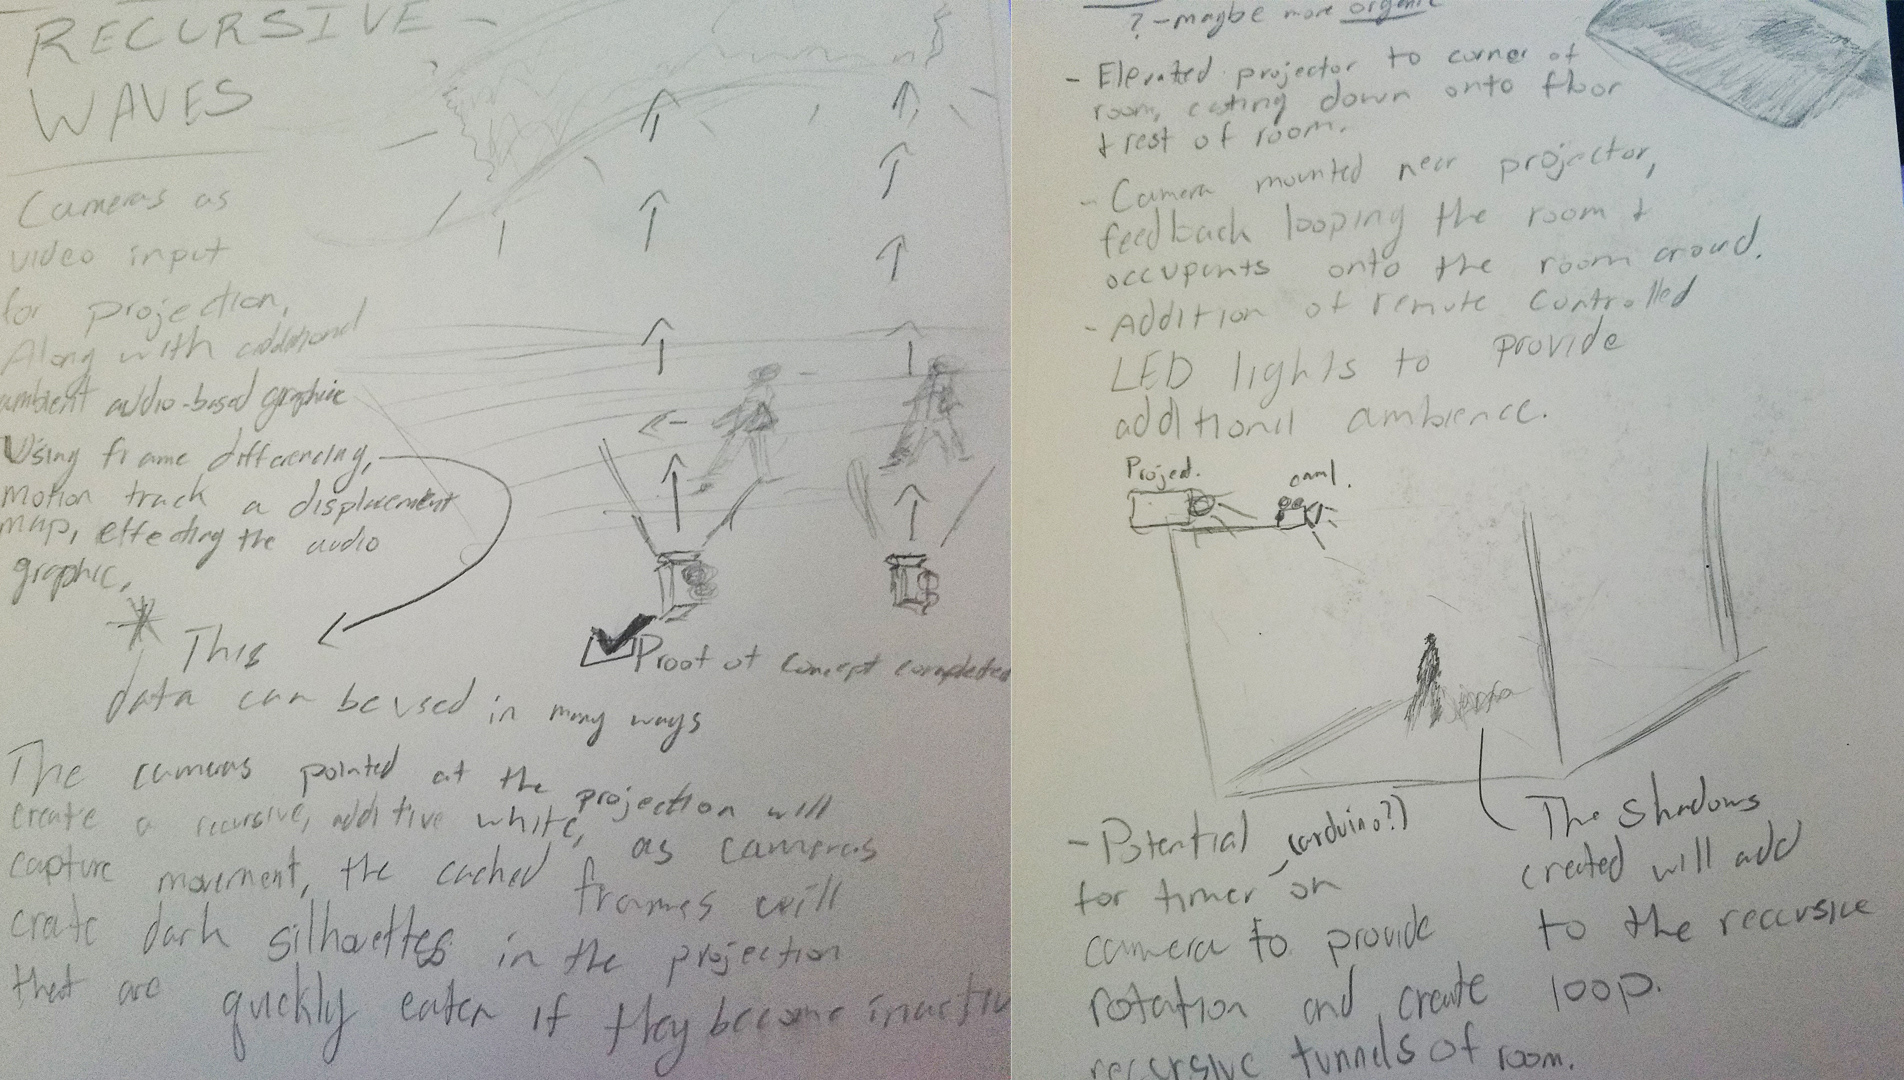 RECURSIVE -
WAVES
Cameras as
video input
for projection,
Along with additional
ambient audio-based graphic
Using frame differencing,
motion track a displacement
map, effecting the audio
graphic.
* This
data can be used in many ways
Proof of concept completed
The cameras pointed at the projection will
create a recursive, additive white, as cameras
capture movement, the cached frames will
create dark silhouettes in the projection
that are quickly eaten if they become inactiv
? - maybe more organic
- Elevated projector to corner of
room, casting down onto floor
+ rest of room.
- Camera mounted near projector,
feedback looping the room +
occupants onto the room around.
- Addition of remote controlled
LED lights to provide
additional ambience.
Project.
- Potential (arduino?)
for timer on
camera to provide
rotation and create
recursive tunnels of room.
The shadows
created will add
to the recursive
loop.